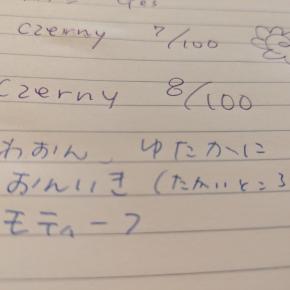 yes
czerny 7/100
czerny 8/100
わおん、ゆたかに
おんいき (たかいところ
モティーフ